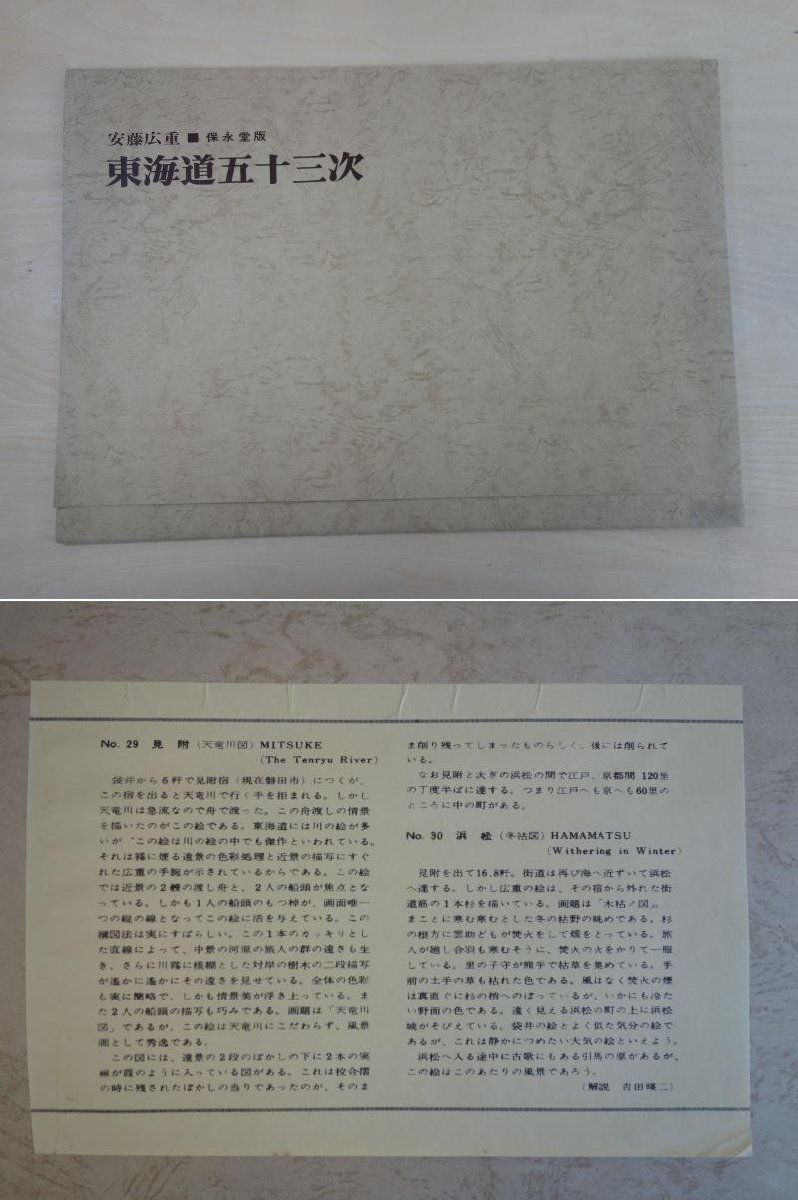 安藤広重 ■ 保永堂版
東海道五十三次
No. 29 見 附 (天竜川図) MITSUKE
(The Tenryu River)
袋井から6粁で見附宿(現在磐田市)につくが、
この宿を出ると天竜川で行く手を拒まれる。しかし
天竜川は急流なので舟で渡った。この舟渡しの情景
を描いたのがこの絵である。東海道には川の絵が多
いが、この絵は川の絵の中でも傑作といわれている。
それは霧に煙る遠景の色彩処理と近景の描写にすぐ
れた広重の手腕が示されているからである。この絵
では近景の2艘の渡し舟と、2人の船頭が焦点とな
っている。しかも1人の船頭のもつ棹が、画面唯一
つの縦の線となってこの絵に活を与えている。この
構図法は実にすばらしい。この1本のカッキリとし
た直線によって、中景の河原の旅人の群の遠さも生
き、さらに川霧に模糊とした対岸の樹木の二段描写
が遙かに遙かにその遠さを見せている。全体の色彩
も実に簡略で、しかも情景美が浮き上っている。ま
た2人の船頭の描写も巧みである。画題は「天竜川
図」であるが、この絵は天竜川にこだわらず、風景
画として秀逸である。
この図には、遠景の2段のぼかしの下に2本の実
線が霞のように入っている図がある。これは校合摺
の時に残されたぼかしの当りであったのが、そのま
ま削り残ってしまったものらしく、後には削られて
いる。
なお見附と次ぎの浜松の間で江戸、京都間 120里
の丁度半ばに達する。つまり江戸へも京へも60里の
ところに中の町がある。
No. 30 浜 松 (冬枯図) HAMAMATSU
(Withering in Winter)
見附を出て16.8粁。街道は再び海へ近ずいて浜松
へ達する。しかし広重の絵は、その宿から外れた街
道筋の1本杉を描いている。画題は「木枯ノ図」。
まことに寒む寒むとした冬の枯野の眺めである。杉
の根方に雲助どもが焚火をして煖をとっている。旅
人が廻し合羽も寒むそうに、焚火の火をかりて一服
している。里の子守が熊手で枯草を集めている。手
前の土手の草も枯れた色である。風はなく焚火の煙
は真直ぐに杉の梢へのぼっているが、いかにも冷た
い野面の色である。遠く見える浜松の町の上に浜松
城がそびえている。袋井の絵とよく似た気分の絵で
あるが、これは静かにつめたい大気の絵といえよう。
浜松へ入る途中に古歌にもある引馬の原があるが、
この絵はこのあたりの風景であろう。
(解説 吉田暎二)